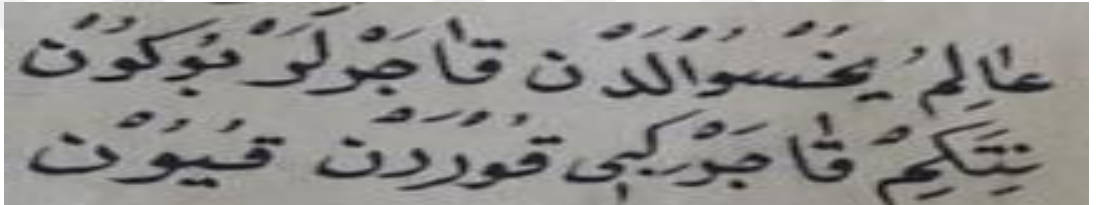 عَالِمُ يُخْسُوْالْدَنْ قَاجَرْلَرْ بُوكُونْ
نِتَكِمْ قَاجَرْ كِبِى قُورْدَنْ قُيُوْنْ